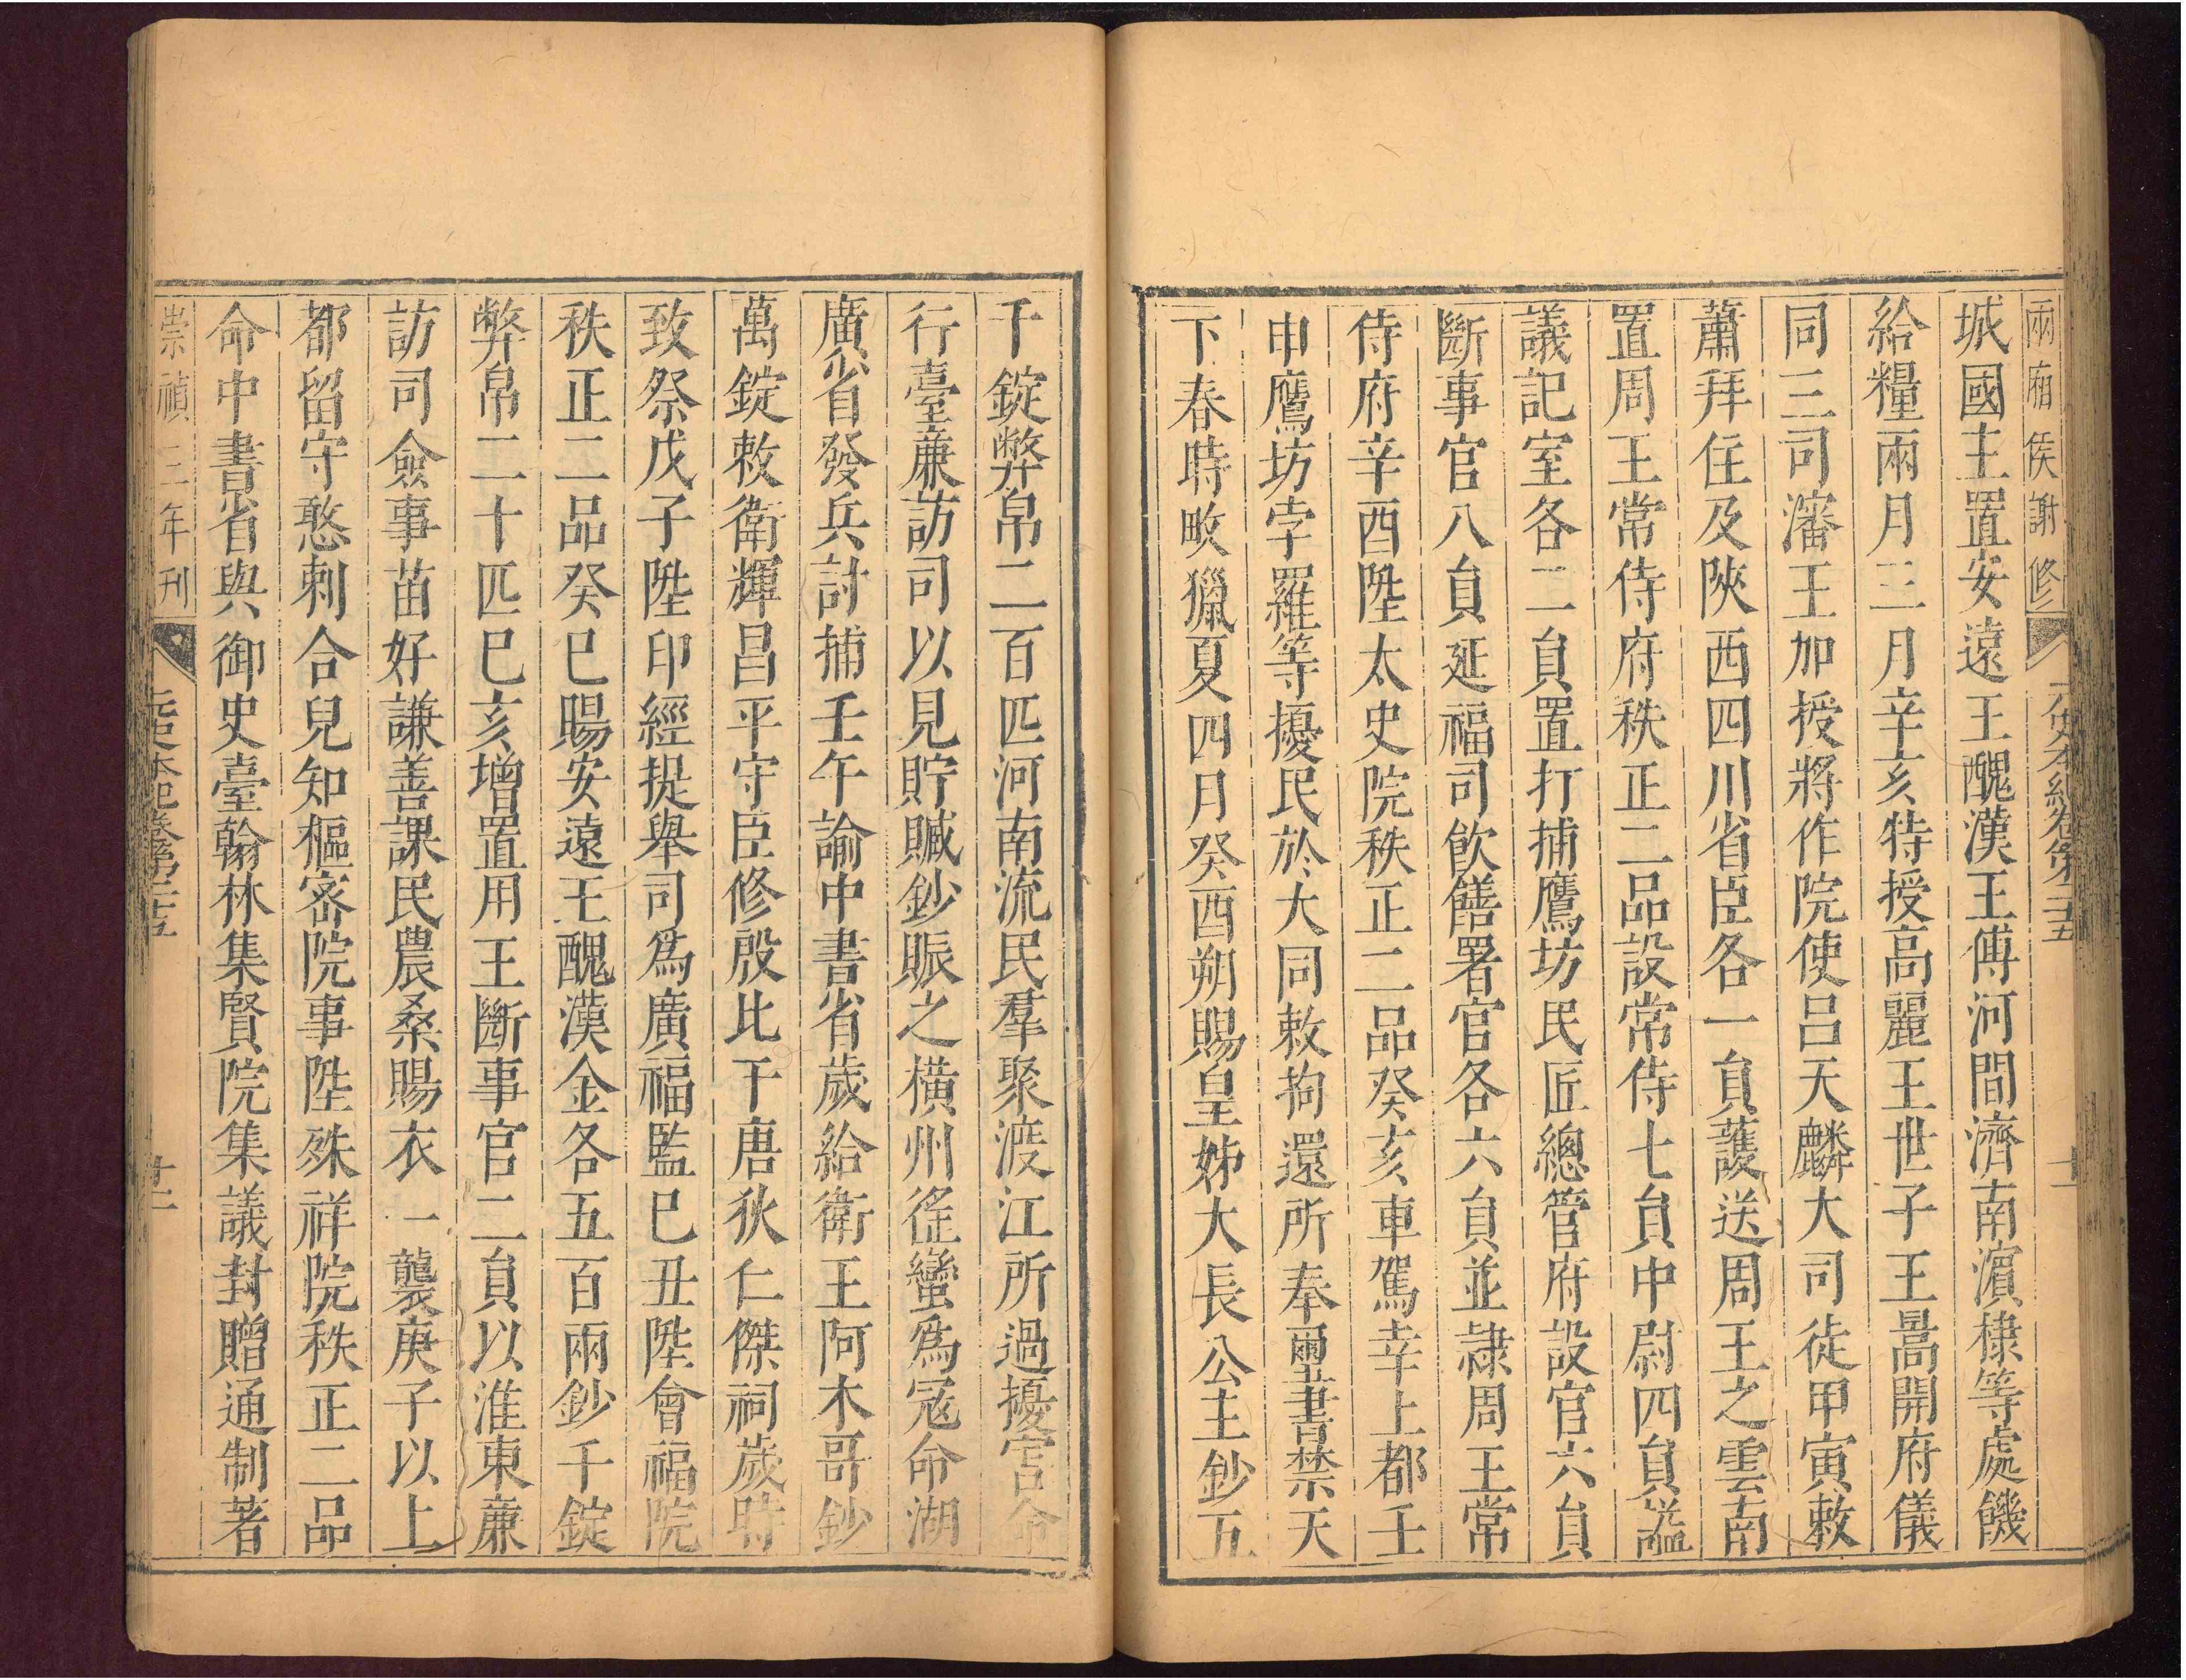 兩廂侯謝修 元史本紀卷第二十五 十一
城國主置安遠王醜漢王傅河間濟南濵棣等處饑
給糧兩月三月辛亥特授高麗王世子王暠開府儀
同三司瀋王加授將作院使呂天麟大司徒甲寅敕
蕭拜住及陝西四川省臣各一員護送周王之雲南
置周王常侍府秩正二品設常侍七員中尉四員諡
議記室各二員置打捕鷹坊民匠總管府設官六員
斷事官八員延福司飲饍署官各六員並隷周王常
侍府辛酉陞太史院秩正二品癸亥車駕幸上都壬
申鷹坊孛羅等擾民於大同敕拘還所奉璽書禁天
下春時畋獵夏四月癸酉朔賜皇姊大長公主鈔五
千錠幣帛二百匹河南流民羣聚渡江所過擾害命
行臺廉訪司以見貯贓鈔賑之橫州徭蠻爲冦命湖
廣省發兵討捕壬午諭中書省歲給衛王阿木哥鈔
萬錠敕衛輝昌平守臣修殷比干唐狄仁傑祠歲時
致祭戊子陞印經提舉司爲廣福監巳丑陞會福院
秩正二品癸巳賜安遠王醜漢金各五百兩鈔千錠
弊帛二十匹巳亥增置用王斷事官二員以淮東廉
訪司僉事苗好謙善課民農桑賜衣一襲庚子以上
都留守憨剌合兒知樞密院事陞殊祥院秩正二品
命中書省與御史臺翰林集賢院集議封贈通制著
崇禎三年刊 元史本紀卷第二十五 十二